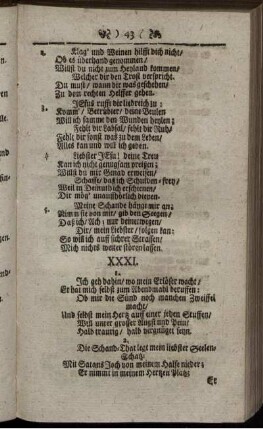 ) 43 (
2.
Klag' und Weinen hilfft dich nicht/
Ob es überhand genommen/
Willst du nicht zum Heyland kommen/
Welcher dir den Trost verspricht.
Du must/ wann dir was geschehen/
Zu dem rechten Helffer gehen.
3.
JEsus rufft dir liebreich zu:
Komm/ Betrübter/ deine Beulen
Will ich samme den Wunden heylen:
Fehlt dir Labsal/ fehlt dir Ruh/
Fehlt dir sonst was zu dem Leben/
Alles kan und will ich geben.
4.
Liebster JEsu! deine Treu
Kan ich nicht genugsam preisen;
Willst du mir Genad erweisen/
Schaffe/ daß ich Schulden-frey/
Weil in Demuth ich erschienen/
Dir mög' unaufhörlich dienen.
5.
Meine Schande hängt mir an;
Nimm sie von mir/ gib den Seegen/
Daß ich/ Ach! nur deinetwegen/
Dir/ mein Liebster/ folgen kan:
So will ich auff sichrer Strassen/
Mich nichts weiter stören lassen.
XXXI.
1.
Ich geh dahin/ wo mein Erlöser wacht/
Er hat mich selbst zum Abendmahl beruffen:
Ob mir die Sünd noch manchen Zweiffel
macht/
Und selbst mein Hertz auf einer jeden Stuffen/
Will unter grosser Angst und Pein/
Halb traurig/ halb vergnüget seyn.
2.
Die Schand-That legt mein liebster Seelen-
Schatz
Mit Satans Joch von meinem Halse nieder;
Er nimmt in meinem Hertzen Platz
Er